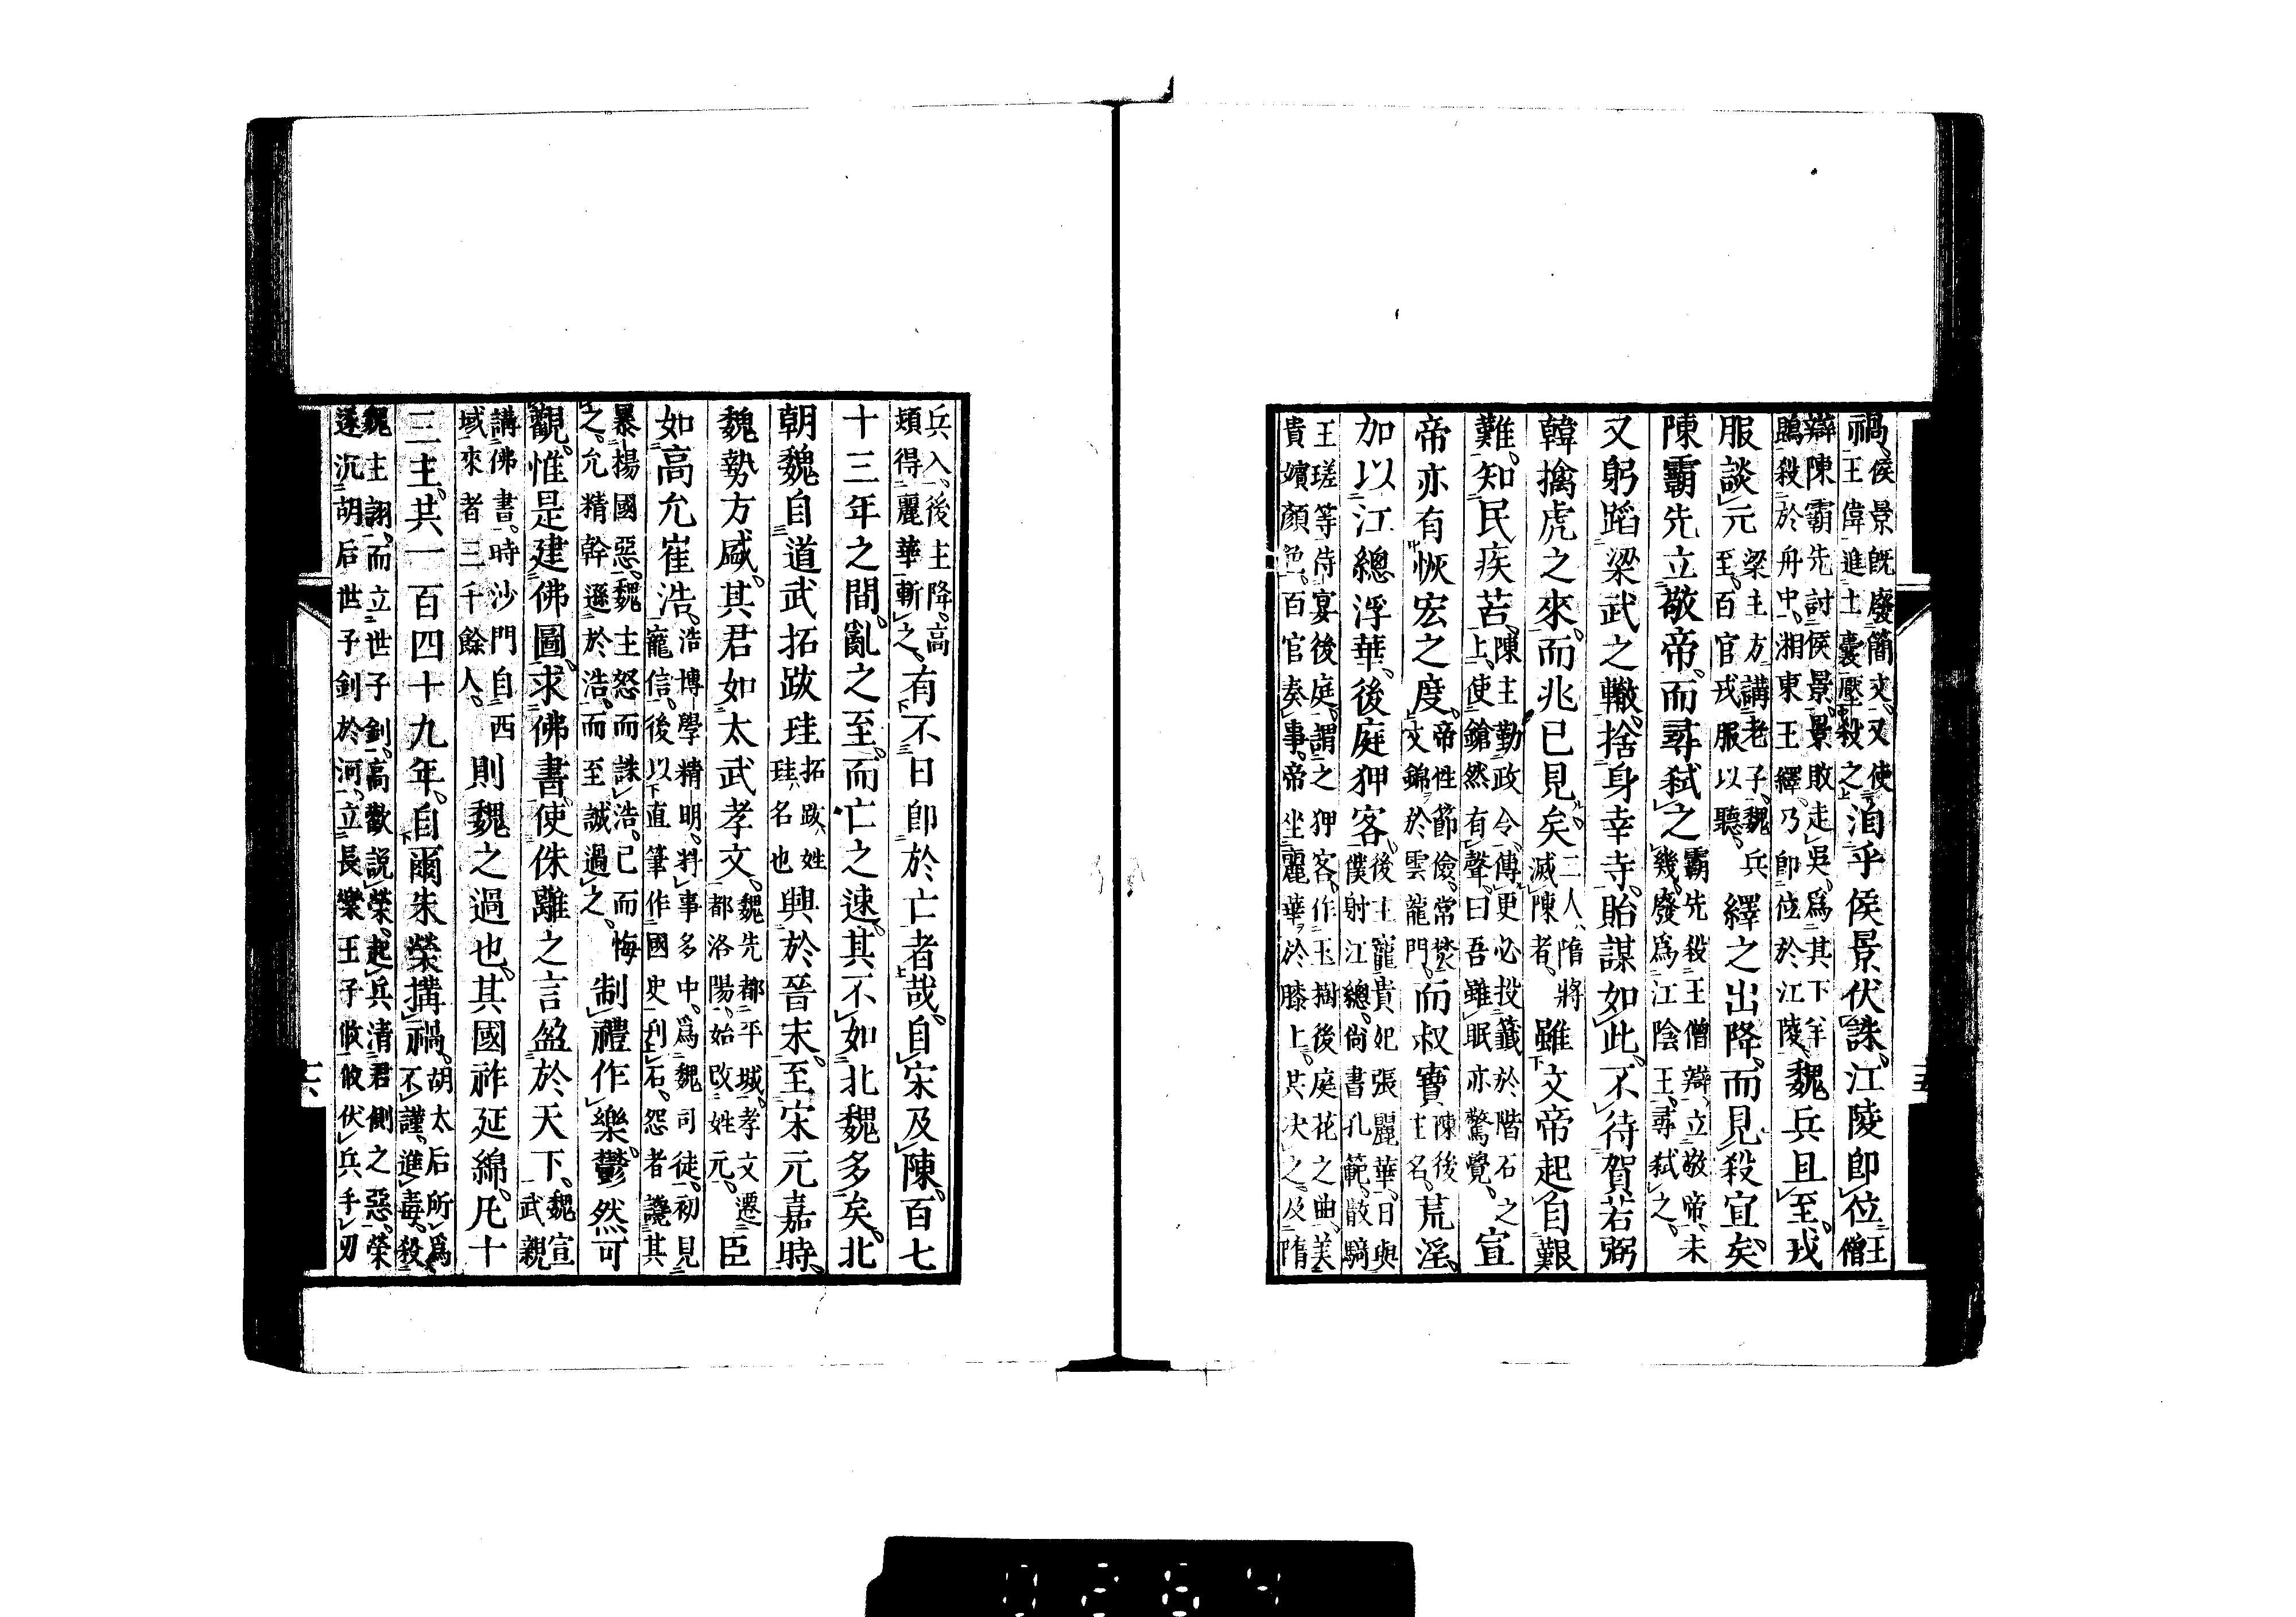 禍侯景既廢簡文又使王偉進土囊壓殺之洎乎侯景伏誅江陵即位王僧
辯陳霸先討侯景景敗走吳爲其下羊鵾殺於舟中湘東王繹乃即位於江陵魏兵且至戎
服談元梁主方講老子魏兵至百官戎服以聽繹之出降而見殺宜矣
陳霸先立敬帝而尋弒之霸先殺王僧辯立敬帝未幾廢爲江陰王尋弒之
又躬蹈梁武之轍捨身幸寺貽謀如此不待賀若弼
韓擒虎之來而兆已見矣二人隋將滅陳者雖文帝起自艱
難知民疾苦陳主勤政令傳更必投籤於階石之上使鎗然有聲曰吾雖眠亦驚覺宣
帝亦有恢宏之度帝性節儉常焚文錦於雲龍門而叔寶陳後主名荒淫
加以江總浮華後庭狎客後主寵貴妃張麗華日與僕射江總尚書孔範散騎
王瑳等侍宴後庭謂之狎客作玉樹後庭花之曲美貴嬪顏色百官奏事帝坐麗華於膝上共决之及隋
兵入後主降高熲得麗華斬之有不日即於亡者哉自宋及陳百七
十三年之間亂之至而亡之速其不如北魏多矣北
朝魏自道武拓跋珪拓跋姓珪名也興於晉末至宋元嘉時
魏勢方盛其君如太武孝文魏先都平城孝文遷都洛陽始改姓元臣
如高允崔浩浩博學精明料事多中爲魏司徒初見寵信後以直筆作國史刊石怨者譖其
暴揚國惡魏主怒而誅浩已而悔之允精幹遜於浩而至誠過之制禮作樂鬱然可
觀惟是建佛圖求佛書使侏離之言盈於天下魏宣武親
講佛書時沙門自西域來者三千餘人則魏之過也其國祚延綿凡十
三主共一百四十九年自爾朱榮搆禍胡太后所爲不謹進毒殺
魏主詡而立世子釗高歡説榮起兵清君側之惡榮遂沉胡后世子釗於河立長樂王子攸攸伏兵手刃